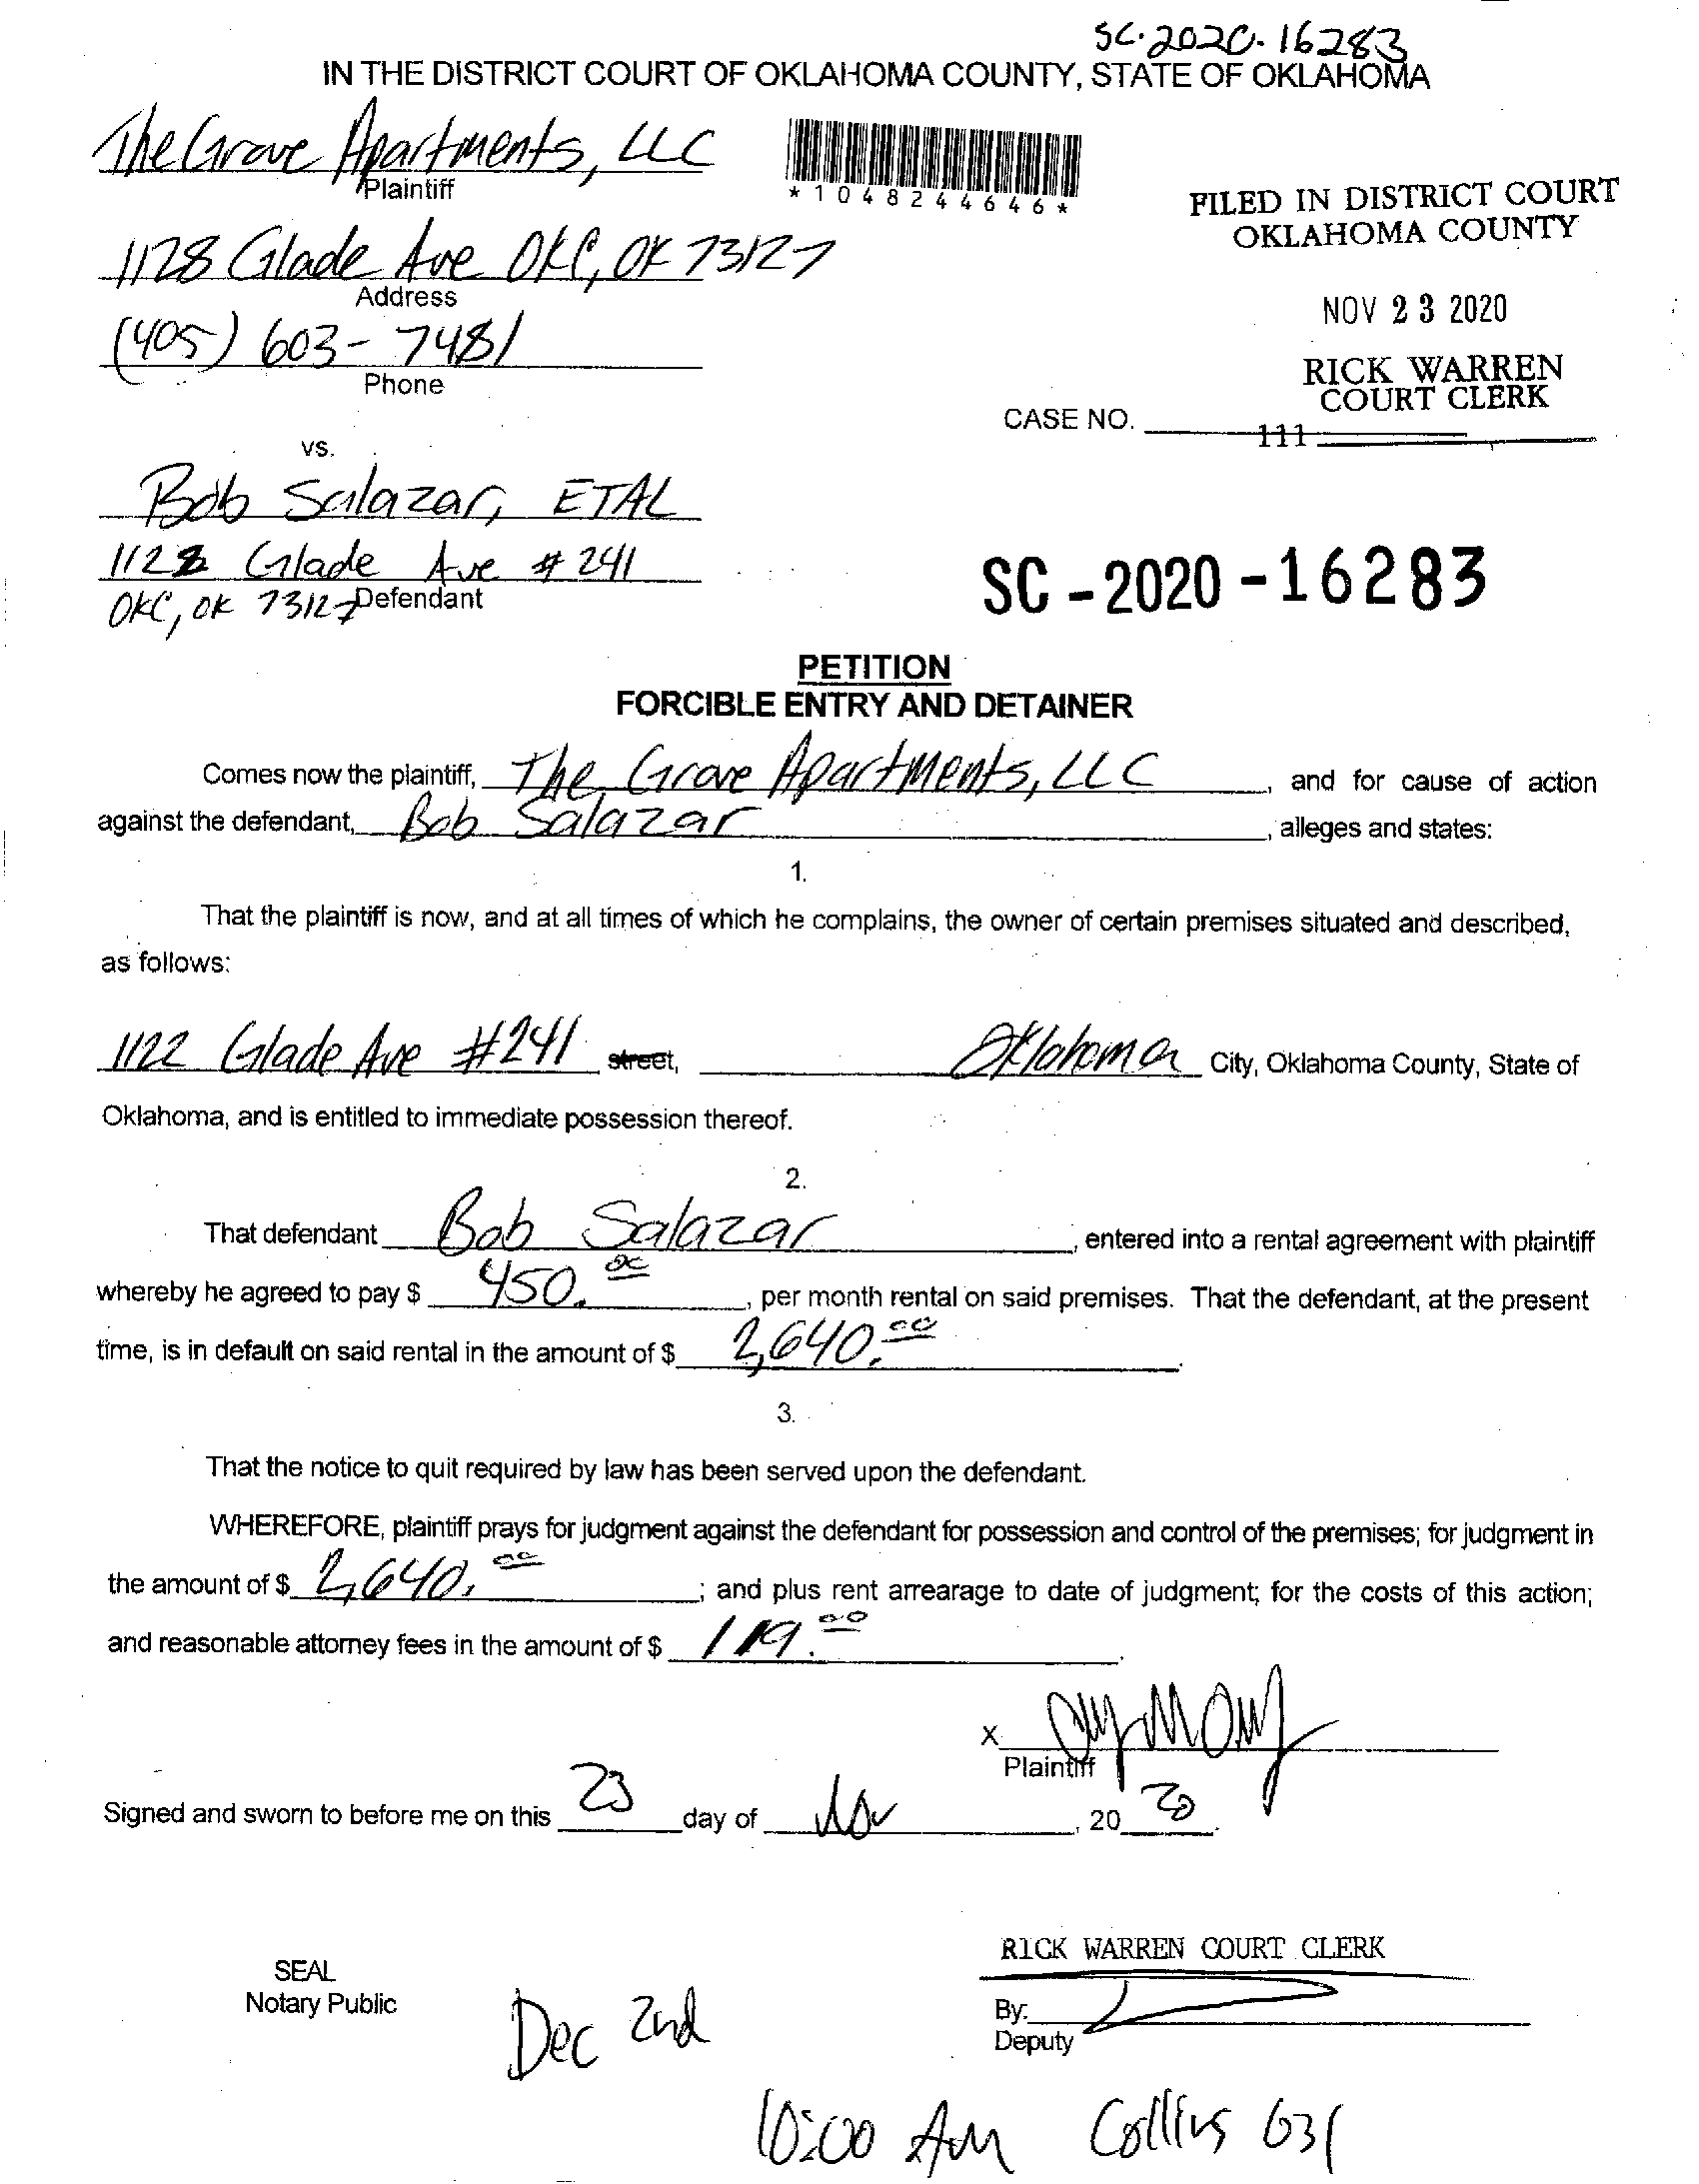 SC-2020-16283
IN THE DISTRICT COURT OF OKLAHOMA COUNTY, STATE OF OKLAHOMA
The Grove Apartments, LLC
Plaintiff
*1048244646*
FILED IN DISTRICT COURT
OKLAHOMA COUNTY
1128 Glade Ave OKC, OK 73127
Address
NOV 23 2020
(405) 603-7481
Phone
RICK WARREN
COURT CLERK
CASE NO.
111
vs.
Bob Salazar, ETAL
1122 Glade Ave #241
OKC, OK 73127
Defendant
SC-2020-16283
PETITION
FORCIBLE ENTRY AND DETAINER
Comes now the plaintiff, The Grove Apartments, LLC, and for cause of action
against the defendant, Bob Salazar, alleges and states:
1.
That the plaintiff is now, and at all times of which he complains, the owner of certain premises situated and described,
as follows:
1122 Glade Ave #241 street, Oklahoma City, Oklahoma County, State of
Oklahoma, and is entitled to immediate possession thereof.
2.
That defendant Bob Salazar, entered into a rental agreement with plaintiff
whereby he agreed to pay $ 450.00, per month rental on said premises. That the defendant, at the present
time, is in default on said rental in the amount of $ 2,640.00.
3.
That the notice to quit required by law has been served upon the defendant.
WHEREFORE, plaintiff prays for judgment against the defendant for possession and control of the premises; for judgment in
the amount of $ 2,640.00; and plus rent arrearage to date of judgment; for the costs of this action;
and reasonable attorney fees in the amount of $ 119.00.
X
Plaintiff
Signed and sworn to before me on this 23 day of Nov, 20 20.
RICK WARREN COURT CLERK
SEAL
Notary Public
By:
Deputy
Dec 2nd
10:00 AM Collins 631